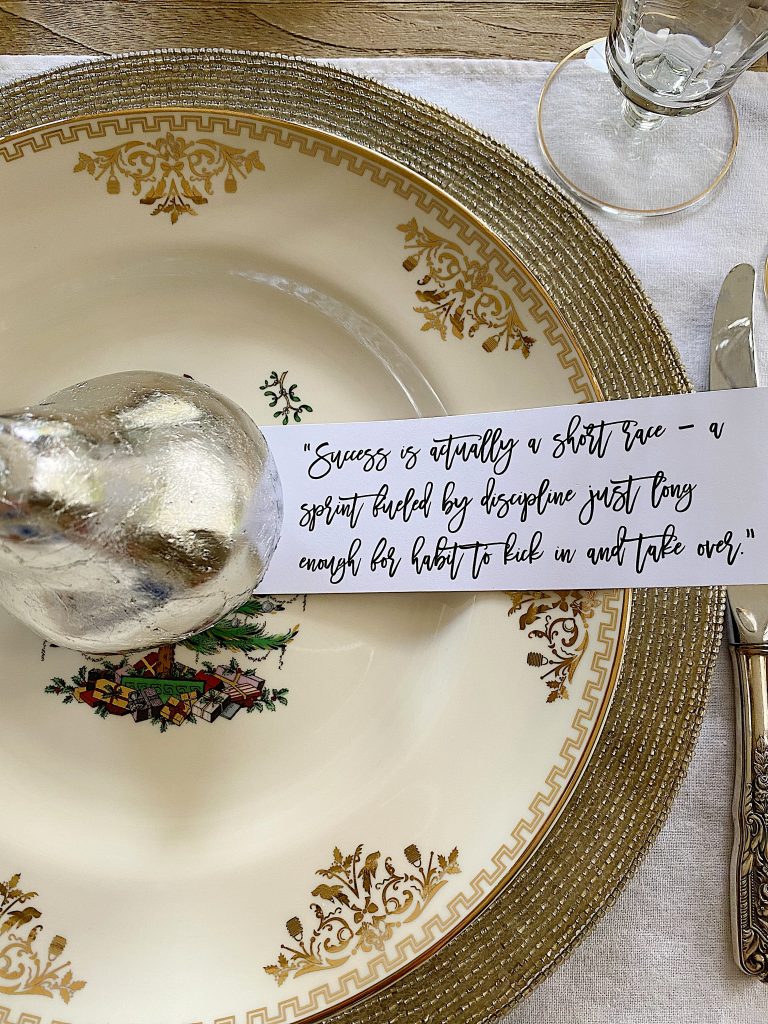 "Success is actually a short race - a
sprint fueled by discipline just long
enough for habit to kick in and take over."